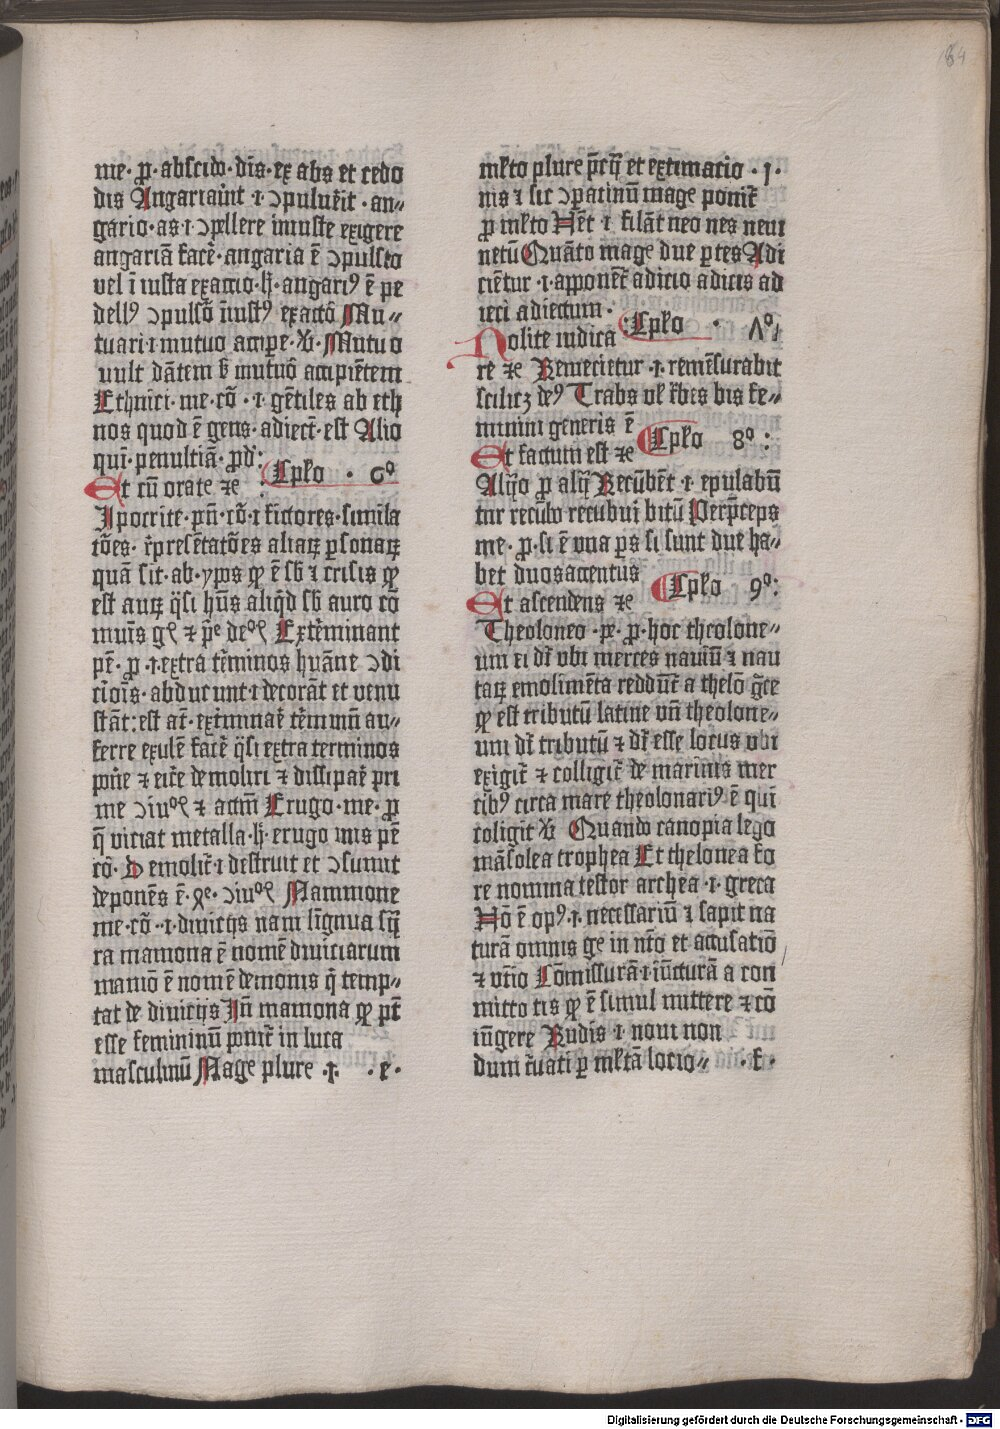 me · p̲ · abscido · dīs · ex abs et cedo
dis Angariaūit ·i· ↄpulerit̄ · an⸗
gario · as ·i· ↄpellere iniuste exigere
angariā facē̄ · angaria ē ↄpulsio
vel ī iusta exactio · h̄ · angariꝰ ē pe
dellꝰ ↄpulsō ñiustꝰ exactō Mu⸗
tuari ·i· mutuo accipe · v̄ · Mutuo
uult dātem h̄ mutuō accipiētem
Ethnici · me · cō · ·i· gētiles ab eth
nos quod ē gens · adiect̄ · est Alio
qui · penultiā · p̲d̄ :
Et cū orate ⁊c : Cpło · 6º
Ipocrite · pñ · cō ·i· fictores · simila
tōes · r̄presētatōes aliaꝝ ꝑsonaꝝ
quā sit · ab · yp̄os ꝙ ē sb̄ ⁊ crisis ꝙ
est auꝝ q̄si hn̄s aliq̄d sb̄ auro cō
muīs gͨ ⁊ p̄ͤ deͦͨ Extēminant
pē · p̲ ·i· extra tēminos huāne ↄdi
cōis · abducunt ·i· decorāt et venu
stāt : est at̄ · extiminar̄ tēminū au⸗
ferre exulē facē̄ q̄si extra terminos
pōne ⁊ eice demoliri ⁊ dissipar̄ pri
me ↄiuͦͨ ⁊ actiū Erugo · me · p̲
q̄ viciat metalla · h̄ · erugo inis pē
cō · Demolit̄ ·i· destruit et ↄsumit
deponēs ē · ꝯͤ · ↄiuͦͨ Mammone
me · cō · ·i· diuicijs nam līgnua sy̆
ra mamona ē nomē diuiciarum
mamō ē nomē demonis q̄ temp⸗
tat de diuicijs Iñ mamona ꝙ pt̄
esse femininū ponit̄ in luca
masculinū Mage plure ·i· · e ·
mēto plure p̄cij et extimatio · i ·
nis ⁊ sic ↄpatinū mage ponit̄
p̲ mēto Hēt ·i· filāt neo nes neui
netū Quāto mage due ꝑtes Adi
ciētur ·i· apponēt̄ adicio adicis ad
ieci adiectum ·
Nolite iudica : Cpło · Λº
re ⁊c Remecietur ·i· remēsurabit̄
scilicz deꝰ Trabs vł t̄bes bis fe⸗
minini generis ē
Et factum est ⁊c Cpło 8º :
Alijo p̲ alij Recūbēt ·i· epulabū
tur recūbo recubui bitū Perp̄ceps
me · p̲ · si ē vna ꝑs si sunt due ha⸗
bet duos accentus
Et ascendens ⁊c Cpło 9º :
Theoloneo · pe · p̲ · hoc theolone⸗
um ei dr̄ vbi merces nauiū ⁊ nau
taꝝ emolimēta reddūt̄ a thelō g̅ce
ꝙ est tributū latine vñ theolone⸗
um dr̄ tributū ⁊ dr̄ esse locus vbi
exigit̄ ⁊ colligit̄ de marinis mer
cibꝰ circa mare theolonariꝰ ē qui
coligit v̄ Quando canopia lego
māsolea trophea Et thelonea fo
re nomina testor archea ·i· greca
Hō ē opꝰ ·i· necessariū ⁊ sapit na
turā omnis ge in nt̄o et accusatiō
⁊ vt̄io Cōmissurā ·i· iūcturā a con
mitto tis ꝙ ē simul mittere ⁊ cō
iūgere Rudīs ·i· noui non
dum t̄uati ꝑ mēt̄ā locio⸗ · f ·
Digitalisierung gefördert durch die Deutsche Forschungsgemeinschaft · DFG